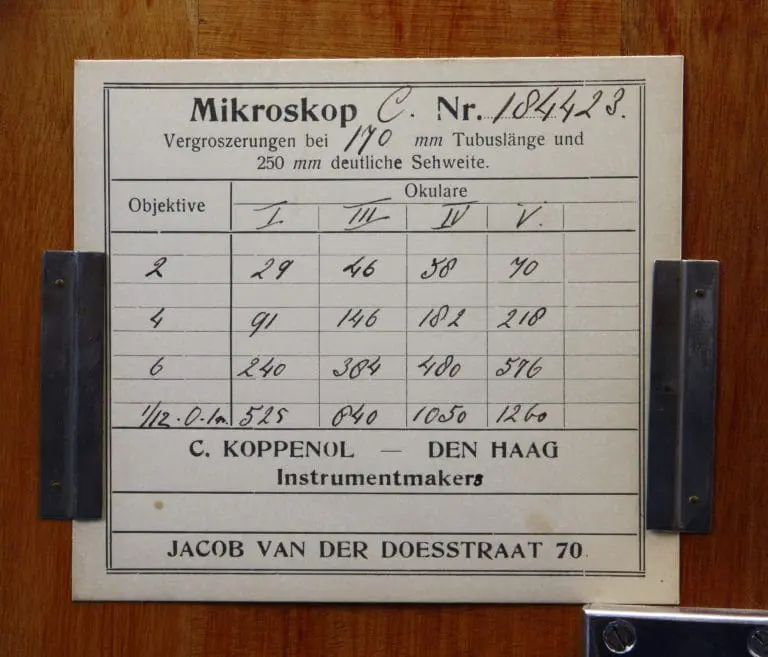 Mikroskop C. Nr. 184423.
Vergroszerungen bei 170 mm Tubuslänge und
250 mm deutliche Sehweite.
Objektive Okulare
I. III IV V.
2 29 46 58 70
4 91 146 182 218
6 240 384 480 576
1/12.O.Im 525 840 1050 1260
C. KOPPENOL — DEN HAAG
Instrumentmakers
JACOB VAN DER DOESSTRAAT 70.